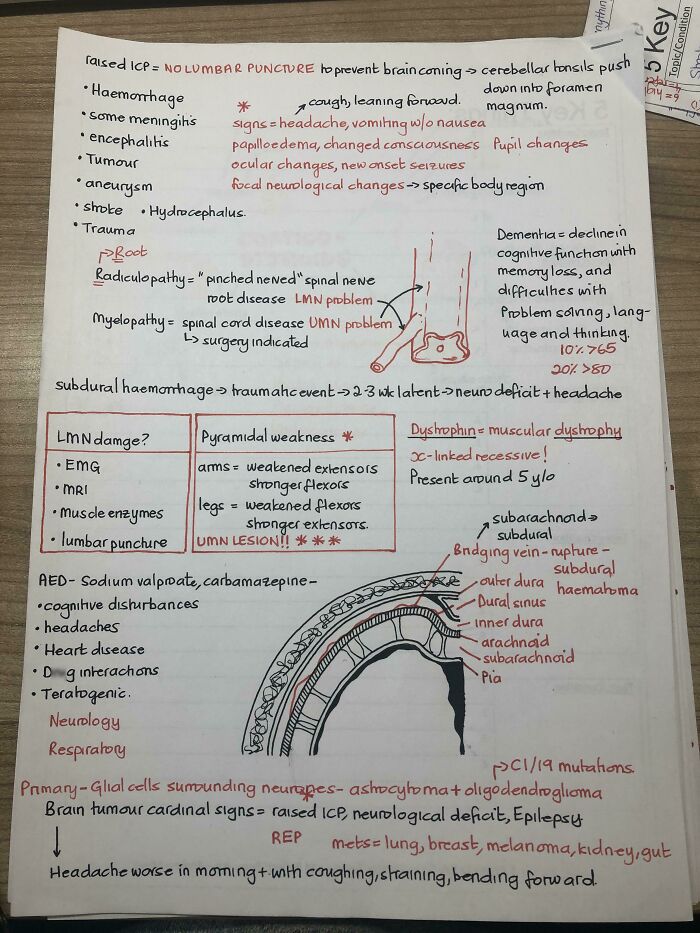 raised ICP = NO LUMBAR PUNCTURE to prevent brain coning → cerebellar tonsils push
down into foramen
magnum.
• Haemorrhage
• some meningitis
• encephalitis
• Tumour
• aneurysm
• stroke • Hydrocephalus.
• Trauma
* cough, leaning forward.
signs = headache, vomiting w/o nausea
papilloedema, changed consciousness Pupil changes
ocular changes, new onset seizures
focal neurological changes → specific body region
Root
Radiculopathy = "pinched nerved" spinal nerve
root disease LMN problem
Myelopathy = spinal cord disease UMN problem
↳ surgery indicated
Dementia = decline in
cognitive function with
memory loss, and
difficulties with
Problem solving, lang-
uage and thinking.
10% >65
20% >80
subdural haemorrhage → traumatic event → 2-3 wk latent → neuro deficit + headache
LMN damge?
• EMG
• MRI
• Muscle enzymes
• lumbar puncture
Pyramidal weakness *
arms = weakened extensors
stronger flexors
legs = weakened flexors
stronger extensors.
UMN LESION!! * * *
Dystrophin = muscular dystrophy
x-linked recessive!
Present around 5 y/o
AED - Sodium valproate, carbamazepine -
• cognitive disturbances
• headaches
• Heart disease
• D g interactions
• Teratogenic.
Neurology
Respiratory
subarachnoid →
subdural
Bridging vein - rupture -
subdural
haematoma
outer dura
Dural sinus
inner dura
arachnoid
subarachnoid
Pia
C1/19 mutations.
Primary - Glial cells surrounding neurones - astrocytoma + oligodendroglioma
*
Brain tumour cardinal signs = raised ICP, neurological deficit, Epilepsy
REP
mets = lung, breast, melanoma, kidney, gut
Headache worse in morning + with coughing, straining, bending forward.
5 Key
Topic/Condition